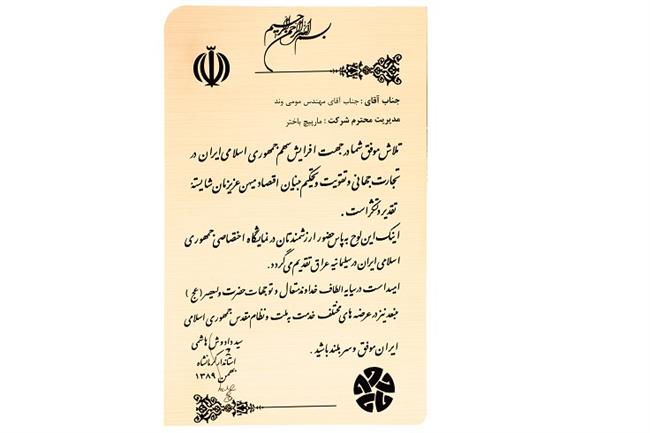 بسم الله الرحمن الرحیم
جناب آقای : جناب آقای مهندس مومی وند
مدیریت محترم شرکت : مارپیچ باختر
تلاش موفق شما در جهت افزایش سهم جمهوری اسلامی ایران در
تجارت جهانی و تقویت و تحکیم بنیان اقتصاد میهن عزیزمان شایسته
تقدیر و تشکر است .
اینک این لوح به پاس حضور ارزشمندتان در نمایشگاه اختصاصی جمهوری
اسلامی ایران در سلیمانیه عراق تقدیم می گردد.
امید است در سایه الطاف خداوند متعال و توجهات حضرت ولیعصر (عج)
منبعد نیز در عرصه های مختلف خدمت به ملت و نظام مقدس جمهوری اسلامی
ایران موفق و سربلند باشید .
سید دادوش هاشمی
استاندار کرمانشاه
بهمن ۱۳۸۹